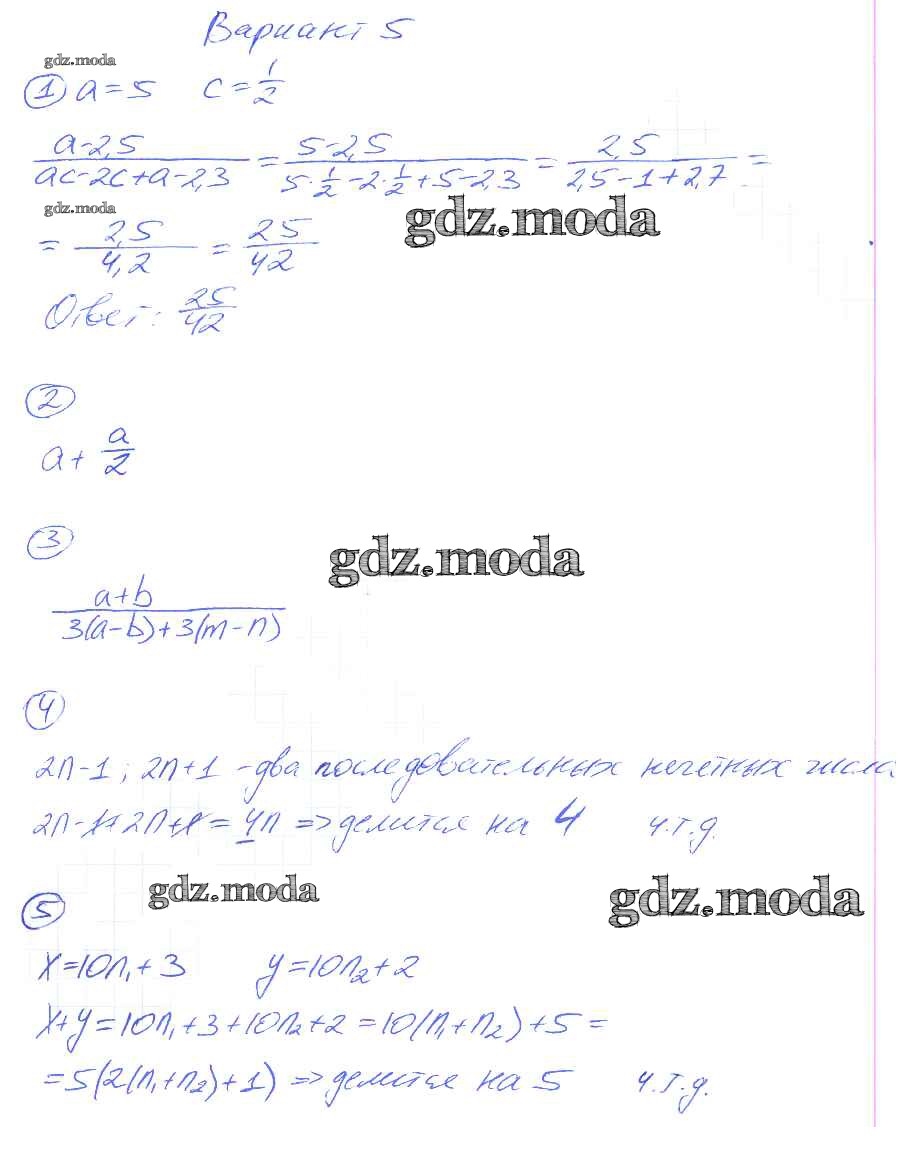 Вариант 5
gdz.moda
① a=5 c=1/2
(a-2,5)/(ac-2c+a-2,3) = (5-2,5)/(5·1/2-2·1/2+5-2,3) = 2,5/(2,5-1+2,7) =
gdz.moda
gdz.moda
= 2,5/4,2 = 25/42
Ответ: 25/42
②
a+a/2
③
gdz.moda
(a+b)/(3(a-b)+3(m-n))
④
2n-1; 2n+1 - два последовательных нечётных числа
2n-1+2n+1=4n => делится на 4 ч.т.д.
gdz.moda
gdz.moda
⑤
x=10n₁+3 y=10n₂+2
x+y=10n₁+3+10n₂+2=10(n₁+n₂)+5=
=5(2(n₁+n₂)+1) => делится на 5 ч.т.д.